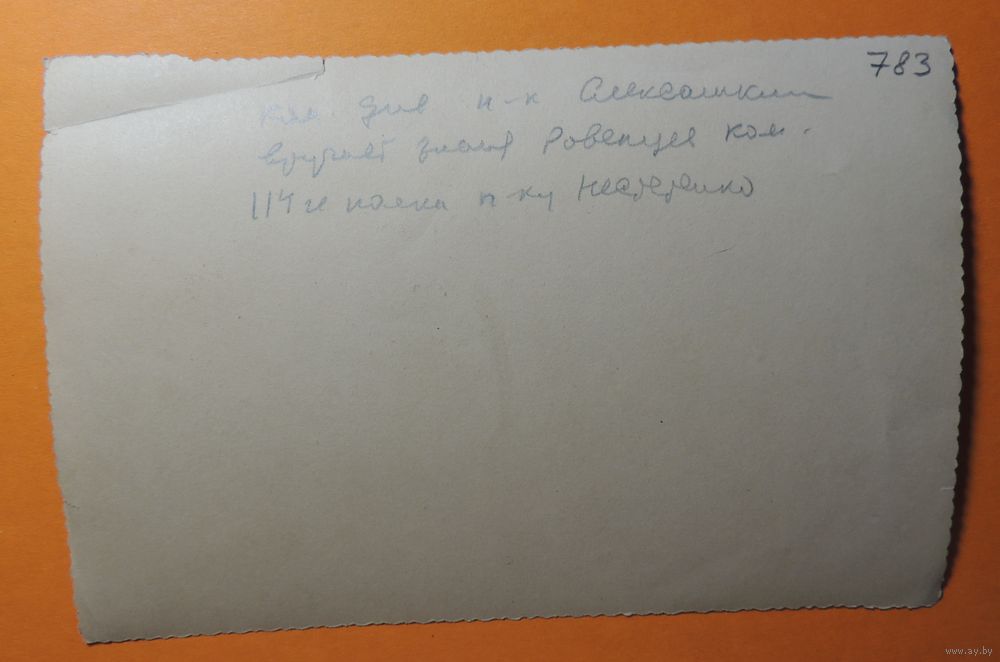 783
ком див п-к Алексашкин
вручает знамя Ровенцев ком.
114 г полка п-ку Нестеренко
www.ay.by